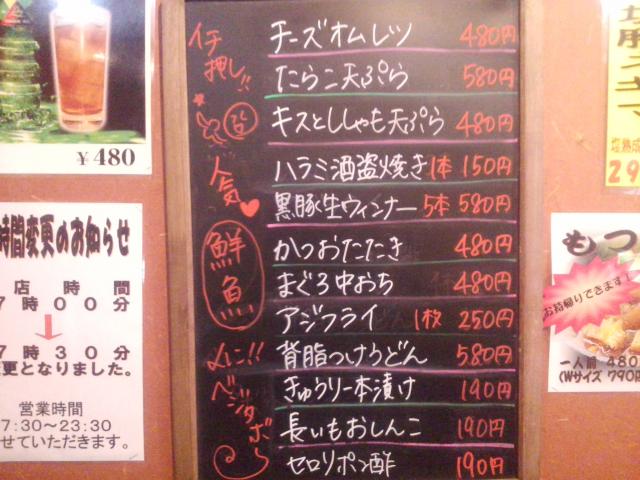 ¥480
時間変更のお知らせ
店時間
7時00分
↓
7時30分
更となりました。
営業時間
7:30～23:30
せていただきます。
イチ押し!!
チーズオムレツ 480円
たらこ天ぷら 580円
キスとししゃも天ぷら 480円
人気
ハラミ酒盗焼き 1本 150円
黒豚生ウィンナー 5本 580円
鮮魚
かつおたたき 480円
まぐろ中おち 480円
アジフライ 1枚 250円
〆に!!
背脂つけうどん 580円
ベジタボー
きゅうり一本漬け 190円
長いもおしんこ 190円
セロリポン酢 190円
塩熟成
29
もつ
お持帰りできます!
一人前 480
(Wサイズ 790円